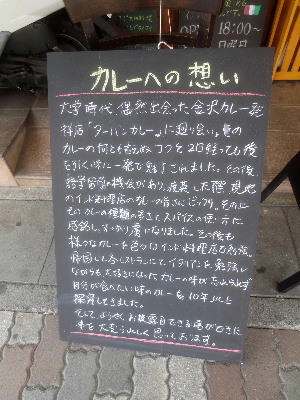 18:00〜
日曜日
カレーへの想い
大学時代、偶然出会った金沢カレー発
祥店「ターバンカレー」に廻り会い。夏の
カレーの何とも言えぬコクと20年経っても後
を引く味に一発で魅了されました。その後
語学留学の機会があり、渡英した際現地
のインド料理店のカレーの旨さにビックリ。その上
カレーの種類の多さとスパイスの使い方に
感銘し、すっかり虜になりました。その後も
様々なカレーを食べインド料理店で勉強。
帰国した今レストランにてイタリアンを勉強し
ながらも大好きになったカレーの味が忘れられず
自分が食べたい味のカレーを10年以上
探究してきました。
そして、ようやくお披露目できる場ができた
事を大変うれしく思っております。